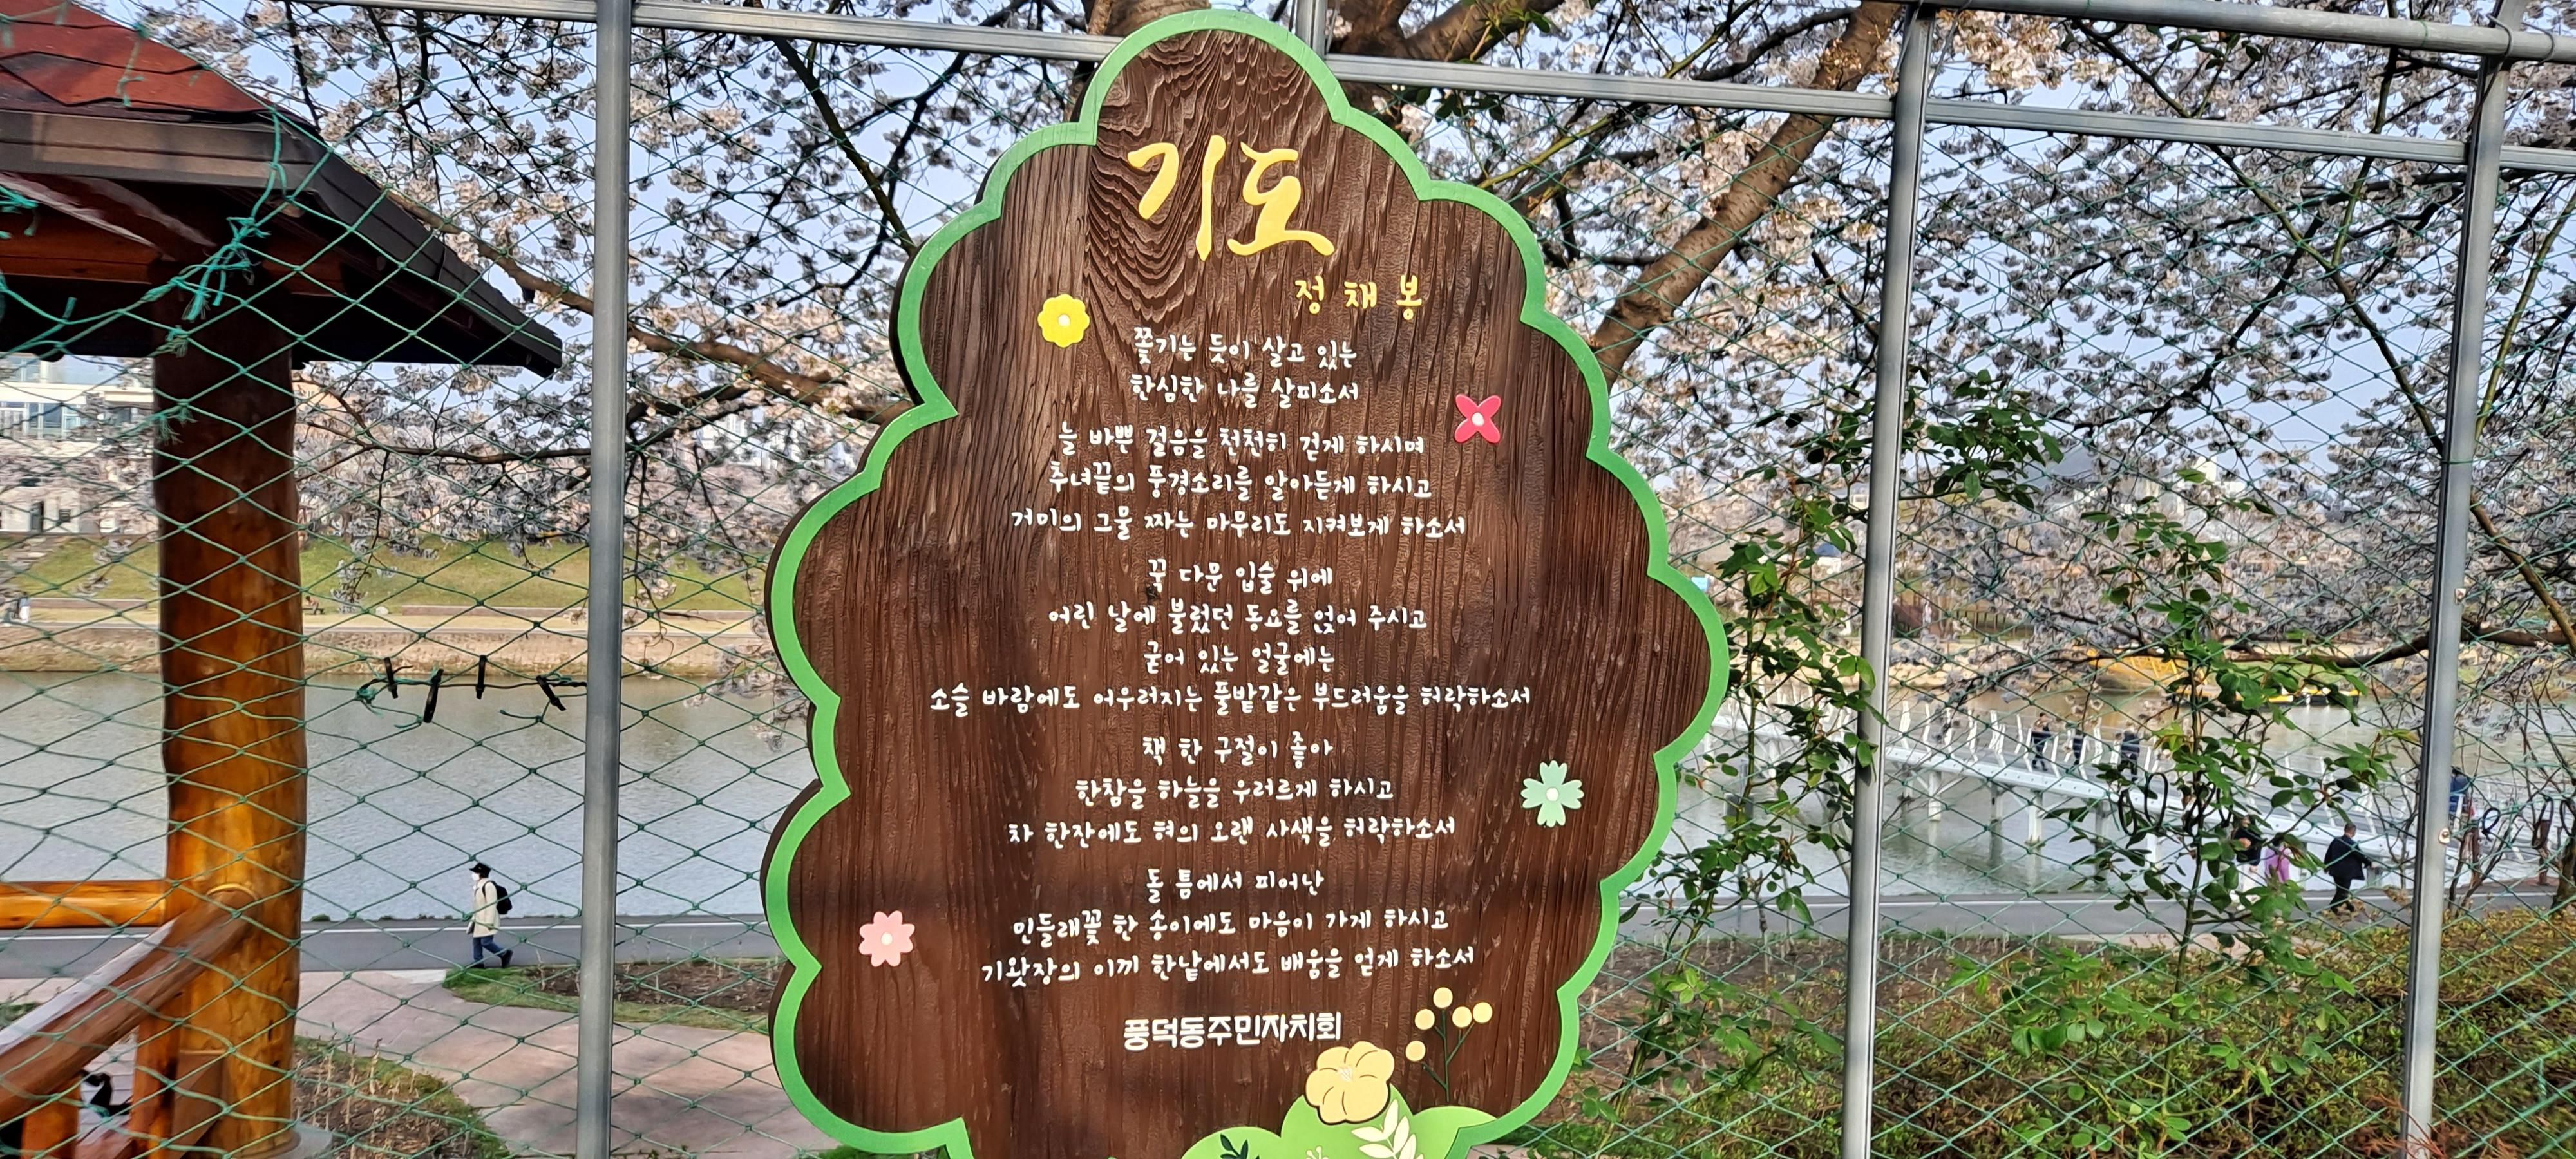 기도
정채봉
쫓기는 듯이 살고 있는
한심한 나를 살피소서
늘 바쁜 걸음을 천천히 걷게 하시며
추녀끝의 풍경소리를 알아듣게 하시고
거미의 그물 짜는 마무리도 지켜보게 하소서
꾹 다문 입술 위에
어린 날에 불렀던 동요를 얹어 주시고
굳어 있는 얼굴에는
소슬 바람에도 어우러지는 풀밭같은 부드러움을 허락하소서
책 한 구절이 좋아
한참을 하늘을 우러르게 하시고
차 한잔에도 혀의 오랜 사색을 허락하소서
돌 틈에서 피어난
민들래꽃 한 송이에도 마음이 가게 하시고
기왓장의 이끼 한낱에서도 배움을 얻게 하소서
풍덕동주민자치회